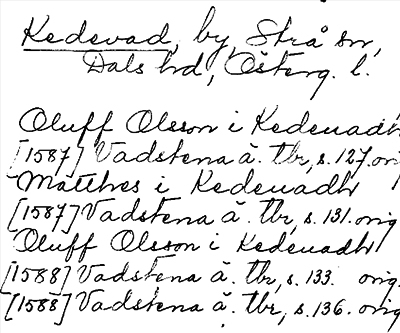 Kedevad, by, Strå sn,
Dals hd, Österg. l.
Oluff Olsson i Kedeuadh
[1587] Vadstena ä. tbr, s. 127. orig
Matthes i Kedeuadh
[1587] Vadstena ä. tbr, s. 131. orig
Oluff Olsson i Kedeuadh
[1588] Vadstena ä. tbr, s. 133. orig.
[1588] Vadstena ä. tbr, s. 136. orig